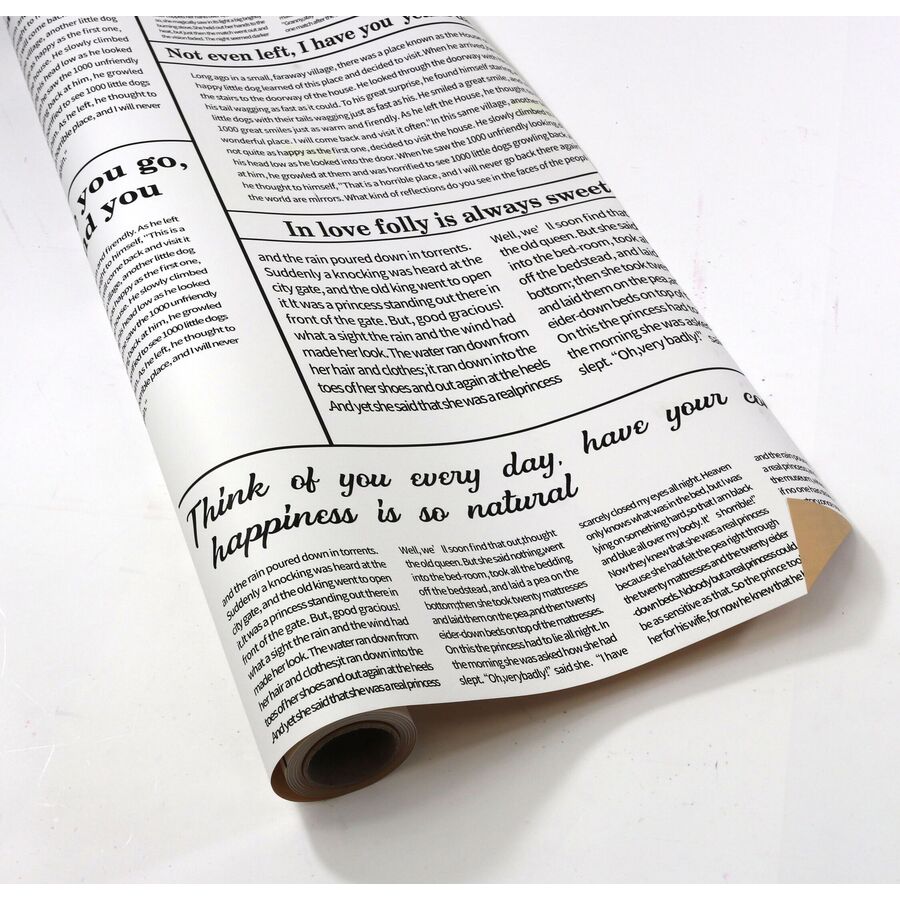 another little dog
as happy as the first one,
house. He slowly climbed
head low as he looked
he saw the 1000 unfriendly
back at him, he growled
to see 1000 little dogs
As he left, he thought to
place, and I will never
you go,
you
and firendly. As he left
to himself, "This is a
come back and visit it
another little dog
happy as the first one,
He slowly climbed
head low as he looked
the 1000 unfriendly
back at him, he growled
to see 1000 little dogs
As he left, he thought to
place, and I will never
burning stove. She held out her hands to the
heat, but just then the match went out and
the vision faded. The night seemed darker
one match after the
Not even left, I have you
Long ago in a small, faraway village, there was a place known as the House
happy little dog learned of this place and decided to visit. When he arrived
the stairs to the doorway of the house. He looked through the doorway
his tail wagging as fast as it could. To his great surprise, he found himself
little dogs with their tails wagging just as fast as his. He smiled a great smile,
1000 great smiles just as warm and firendly. As he left the House, he thought
wonderful place. I will come back and visit it often." In this same village, another
not quite as happy as the first one, decided to visit the house. He slowly climbed
his head low as he looked into the door. When he saw the 1000 unfriendly looking
at him, he growled at them and was horrified to see 1000 little dogs growling back
he thought to himself, "That is a horrible place, and I will never go back there again
the world are mirrors. What kind of reflections do you see in the faces of the people
In love folly is always sweet
and the rain poured down in torrents.
Suddenly a knocking was heard at the
city gate, and the old king went to open
it.It was a princess standing out there in
front of the gate. But, good gracious!
what a sight the rain and the wind had
made her look. The water ran down from
her hair and clothes;it ran down into the
toes of her shoes and out again at the heels
And yet she said that she was a real princess
Well, we' ll soon find that
the old queen. But she said
into the bed-room, took
off the bedstead, and laid
bottom; then she took
and laid them on the pea,
eider-down beds on top of
On this the princess had
the morning she was
slept. "Oh,very badly!"
Think of you every day, have your
happiness is so natural
and the rain poured down in torrents.
Suddenly a knocking was heard at the
city gate, and the old king went to open
it.It was a princess standing out there in
front of the gate. But, good gracious!
what a sight the rain and the wind had
made her look. The water ran down from
her hair and clothes;it ran down into the
toes of her shoes and out again at the heels
And yet she said that she was a real princess
Well, we' ll soon find that out,thought
the old queen. But she said nothing,went
into the bed-room, took all the bedding
off the bedstead, and laid a pea on the
bottom;then she took twenty mattresses
and laid them on the pea,and then twenty
eider-down beds on top of the mattresses
On this the princess had to lie all night. In
the morning she was asked how she had
slept. "Oh,very badly!" said she. "I have
scarcely closed my eyes all night. Heaven
only knows what was in the bed, but I was
lying on something hard, so that I am black
and blue all over my body. It' s horrible!"
Now they knew that she was a real princess
because she had felt the pea right through
the twenty mattresses and the twenty eider
-down beds. Nobody but a real princess could
be as sensitive as that. So the prince took
her for his wife, for now he knew that he
and the rain
a real princess
the museum,
if no one has